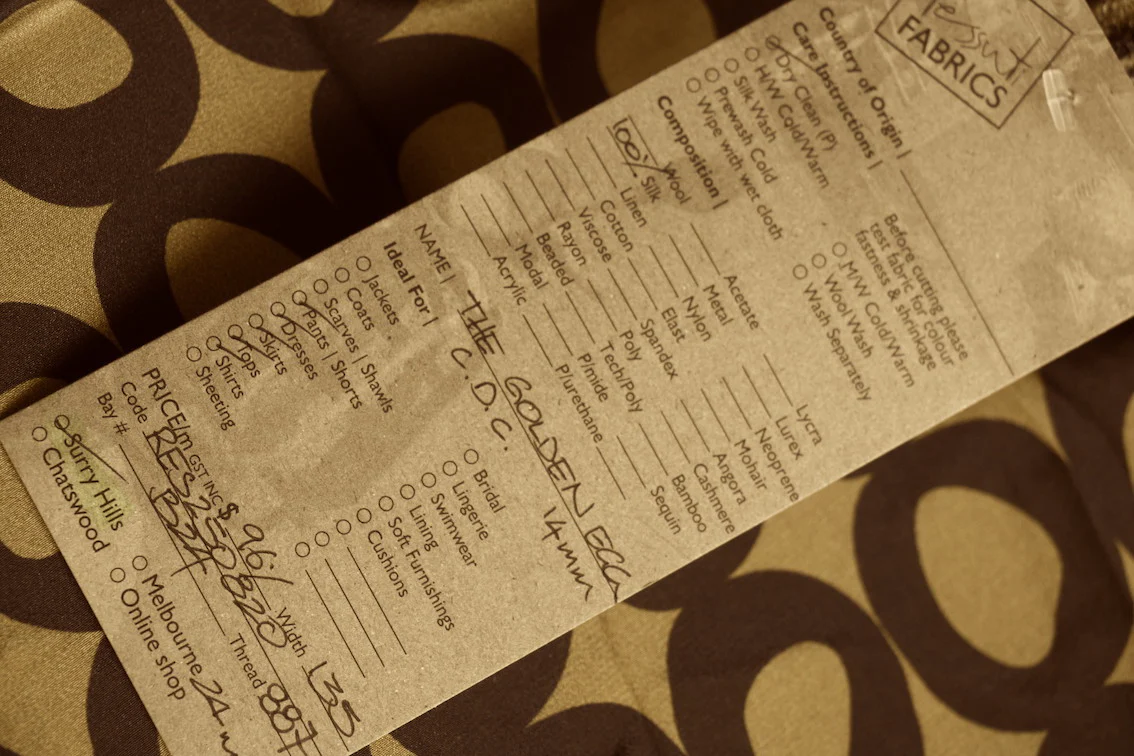 Tessuti
FABRICS
Country of Origin |
Care Instructions |
Dry Clean (P)
H/W Cold/Warm
Silk Wash
Prewash Cold
Wipe with wet cloth
Before cutting please
test fabric for colour
fastness & shrinkage
M/W Cold/Warm
Wool Wash
Wash Separately
Composition |
Wool
100% Silk
Linen
Cotton
Viscose
Rayon
Beaded
Modal
Acrylic
Acetate
Metal
Nylon
Elast
Spandex
Poly
Tech/Poly
P/mide
P/urethane
Lycra
Lurex
Neoprene
Mohair
Angora
Cashmere
Bamboo
Sequin
NAME | THE GOLDEN EGG
C.D.C. 14mm
Ideal For |
Jackets
Coats
Scarves | Shawls
Pants | Shorts
Dresses
Skirts
Tops
Shirts
Sheeting
Bridal
Lingerie
Swimwear
Lining
Soft Furnishings
Cushions
PRICE/m GST INC $ 96/ Width 135
Code RES250820 Thread 887
Bay # B24
Surry Hills
Chatswood
Melbourne 24 m
Online shop